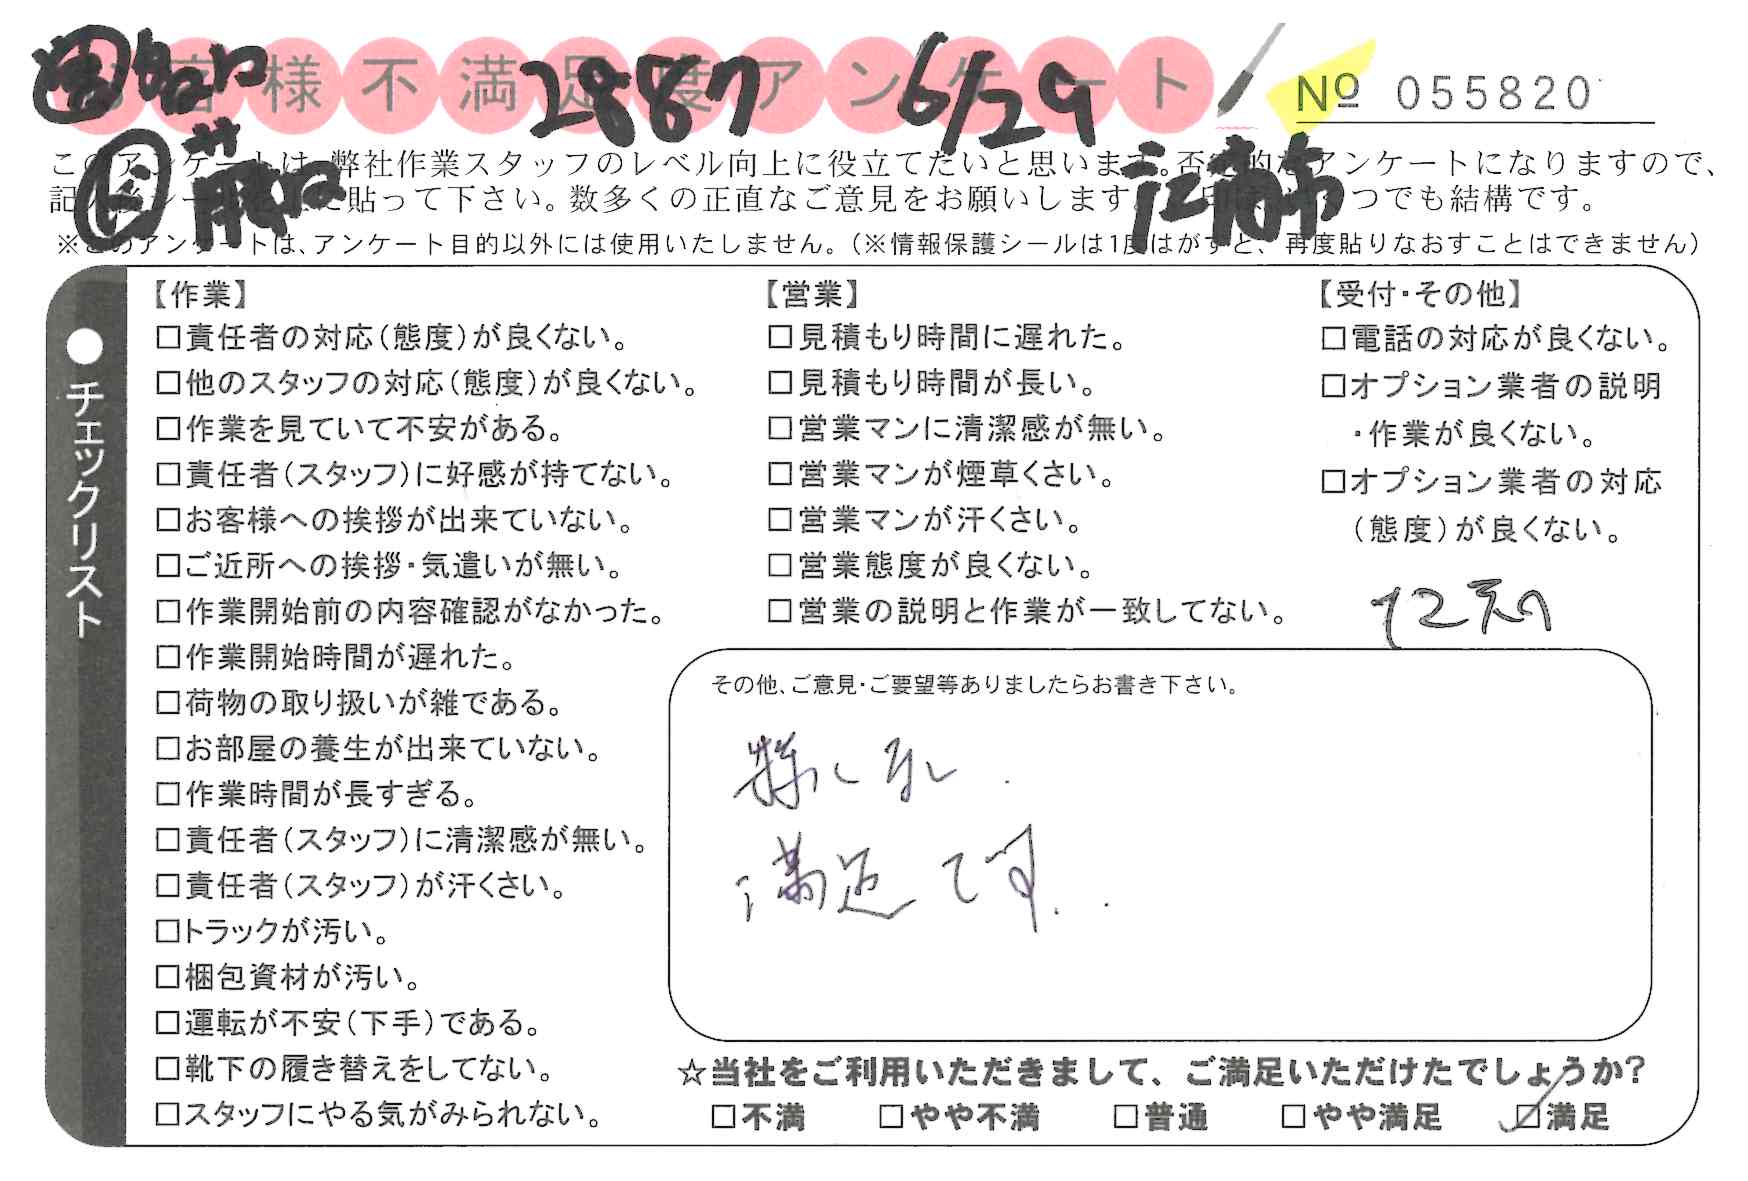 お客様不満足度アンケート
2887
6/29
№ 055820
このアンケートは、弊社作業スタッフのレベル向上に役立てたいと思います。否定的なアンケートになりますので、
記入後シールを上に貼って下さい。数多くの正直なご意見をお願いします。
つでも結構です。
※このアンケートは、アンケート目的以外には使用いたしません。（※情報保護シールは1度はがすと、再度貼りなおすことはできません）
●チェックリスト
【作業】
□責任者の対応（態度）が良くない。
□他のスタッフの対応（態度）が良くない。
□作業を見ていて不安がある。
□責任者（スタッフ）に好感が持てない。
□お客様への挨拶が出来ていない。
□ご近所への挨拶・気遣いが無い。
□作業開始前の内容確認がなかった。
□作業開始時間が遅れた。
□荷物の取り扱いが雑である。
□お部屋の養生が出来ていない。
□作業時間が長すぎる。
□責任者（スタッフ）に清潔感が無い。
□責任者（スタッフ）が汗くさい。
□トラックが汚い。
□梱包資材が汚い。
□運転が不安（下手）である。
□靴下の履き替えをしてない。
□スタッフにやる気がみられない。
【営業】
□見積もり時間に遅れた。
□見積もり時間が長い。
□営業マンに清潔感が無い。
□営業マンが煙草くさい。
□営業マンが汗くさい。
□営業態度が良くない。
□営業の説明と作業が一致してない。
【受付・その他】
□電話の対応が良くない。
□オプション業者の説明
・作業が良くない。
□オプション業者の対応
（態度）が良くない。
その他、ご意見・ご要望等ありましたらお書き下さい。
特になし.
満足です..
☆当社をご利用いただきまして、ご満足いただけたでしょうか?
□不満 □やや不満 □普通 □やや満足 ☑満足